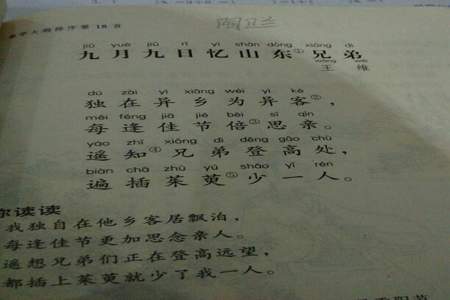 第18首
jiǔ yuè jiǔ rì yì shān dōng xiōng dì
九月九日忆山东①兄弟
wáng wéi
王维
dú zài yì xiāng wéi yì kè
独在异乡为异客②,
měi féng jiā jié bèi sī qīn
每逢佳节倍③思亲。
yáo zhī xiōng dì dēng gāo chù
遥知④兄弟登高处,
biàn chā zhū yú shǎo yì rén
遍插茱萸⑤少一人。
你读读
我独自在他乡客居飘泊,
每逢佳节更加思念亲人。
遥想兄弟们正在登高远望,
都插上茱萸就少了我一人。